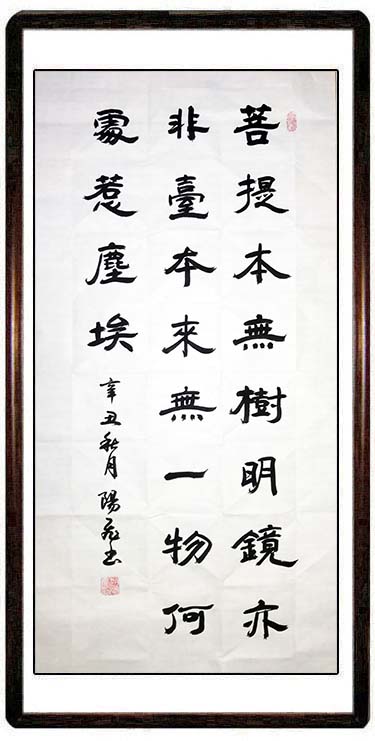 菩提本無樹明鏡亦
非臺本來無一物何
處惹塵埃
辛丑秋月陽书